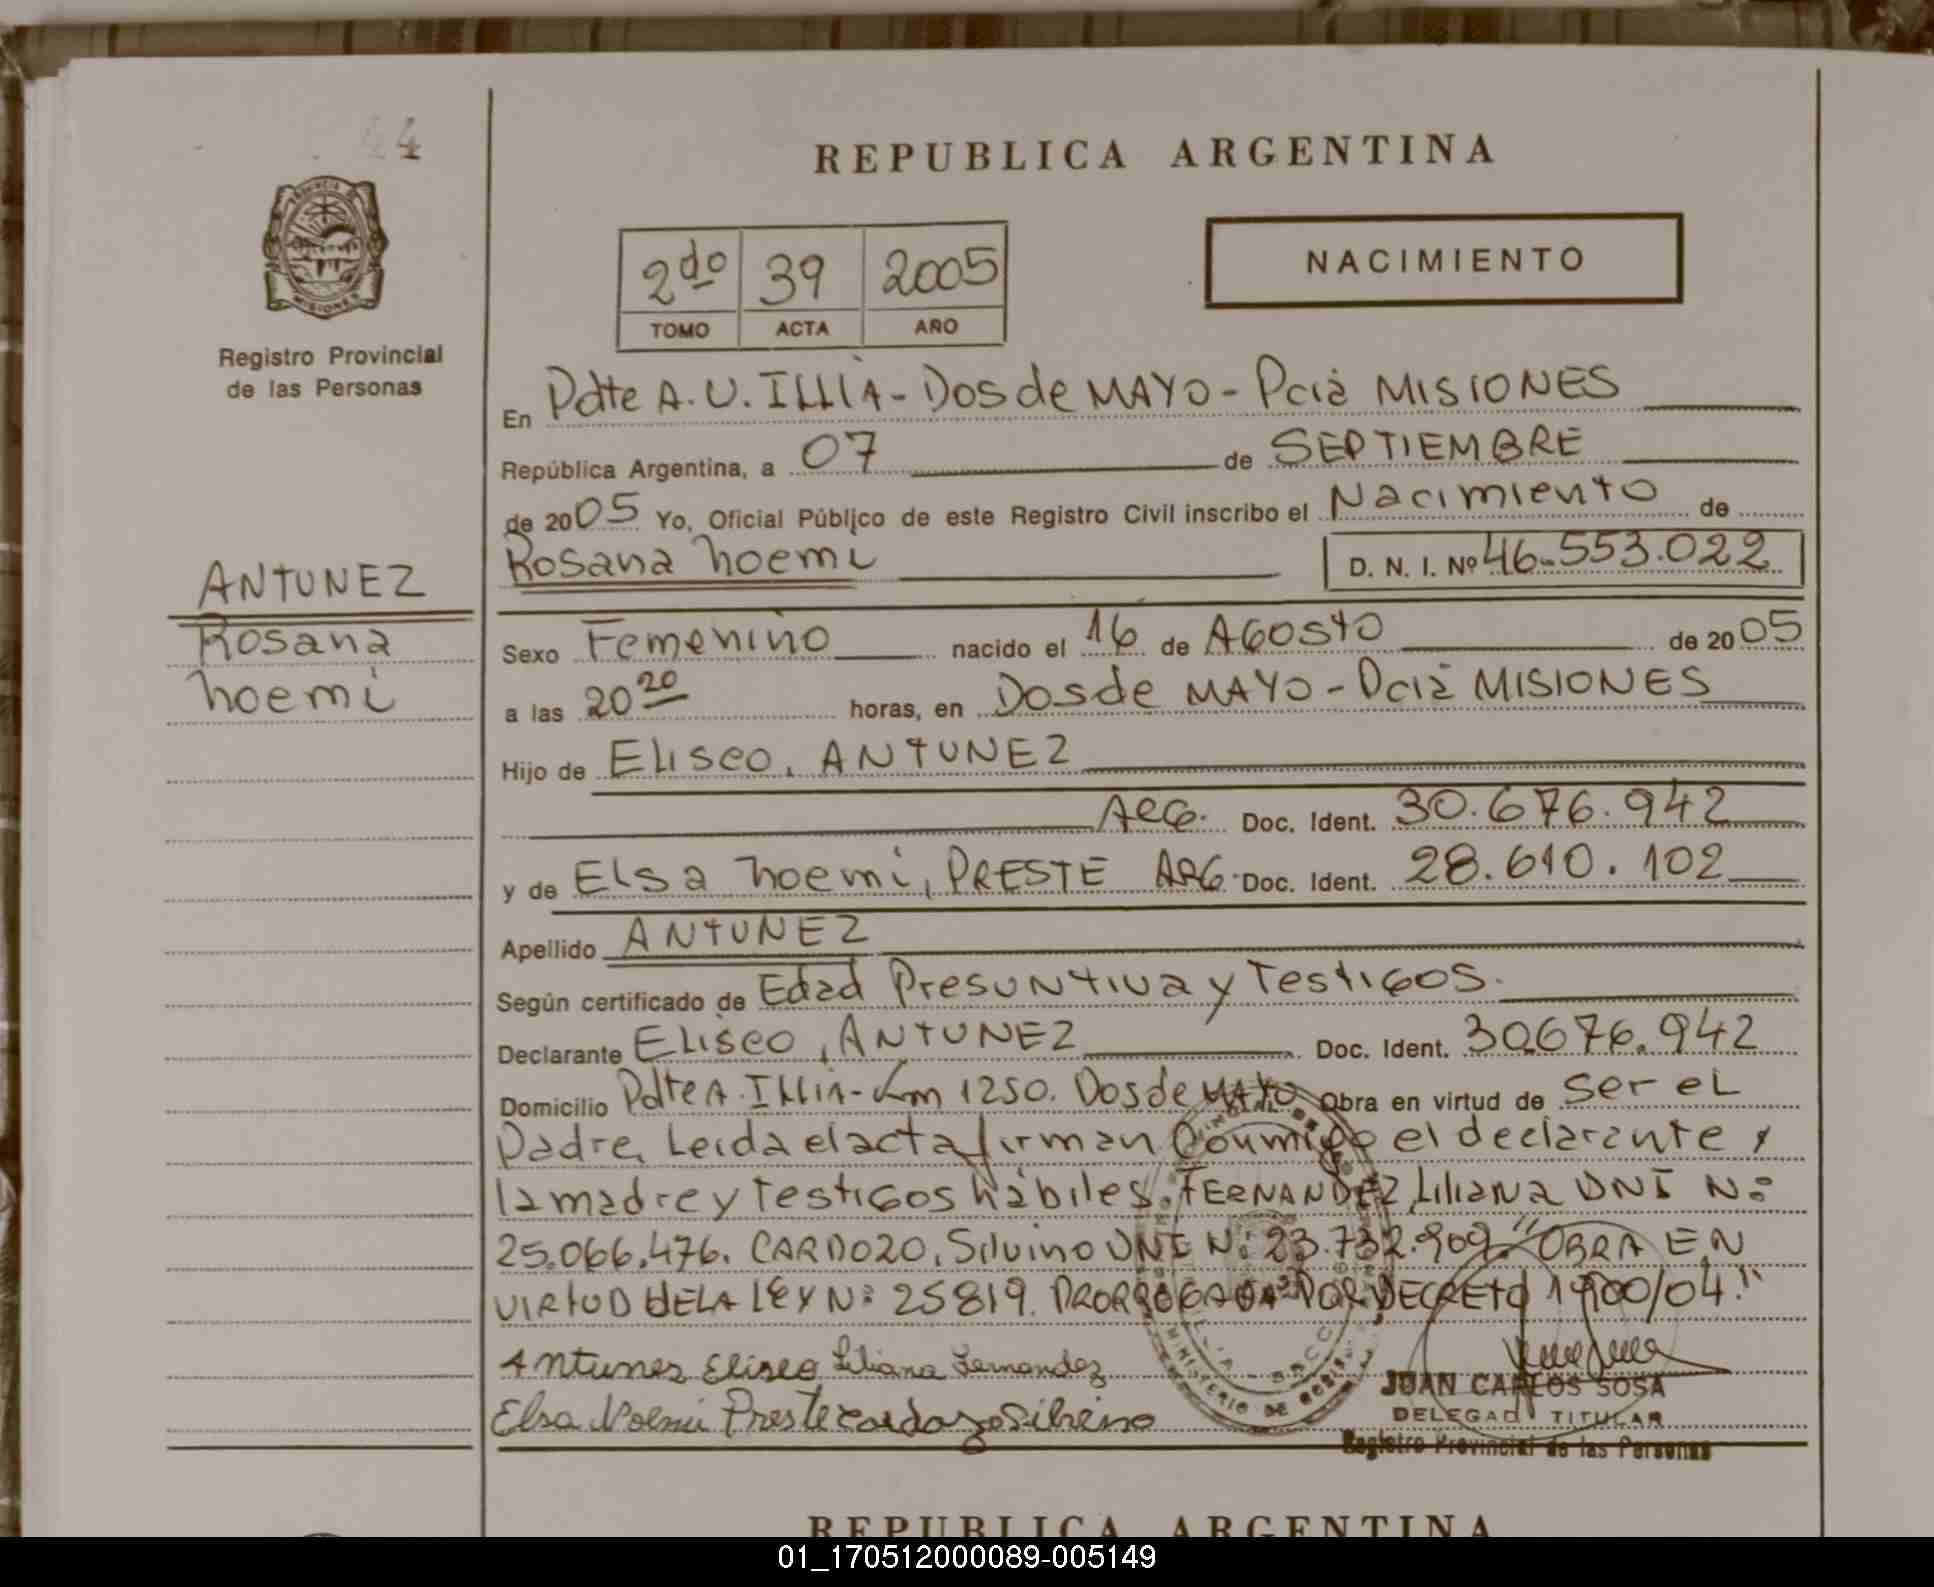 44
REPUBLICA ARGENTINA
PROVINCIA DE MISIONES
2do 39 2005
TOMO ACTA AÑO
NACIMIENTO
Registro Provincial
de las Personas
En Pdte A. U. ILLIA - Dos de MAYO - Pciá MISIONES
República Argentina, a 07 de SEPTIEMBRE
de 2005 Yo, Oficial Público de este Registro Civil inscribo el Nacimiento de
Rosana Noemi D. N. I. Nº 46.553.022
ANTUNEZ
Rosana
Noemi
Sexo Femenino nacido el 16 de AGOSTO de 2005
a las 20 20 horas, en Dos de MAYO - Pciá MISIONES
Hijo de Eliseo, ANTUNEZ
ARG. Doc. Ident. 30.676.942
y de Elsa Noemi, PRESTE ARG. Doc. Ident. 28.610.102
Apellido ANTUNEZ
Según certificado de Edad Presuntiva y Testigos.
Declarante Eliseo, ANTUNEZ Doc. Ident. 30676.942
Domicilio Pdte A. Illia - Km 1250. Dos de MAYO Obra en virtud de ser el
Padre, Leida el acta firman Conmigo el declarante y
la madre y Testigos hábiles, FERNANDEZ, Liliana DNI Nº
25.066.476. CARDOZO, Silvino DNI Nº 23.732.909. "OBRA EN
VIRTUD DE LA LEY Nº 25819. PRORROGADA POR DECRETO 1900/04."
Antunes Eliseo Liliana Fernandez
Elsa Noemi Preste cardozo Silvino
JUAN CARLOS SOSA
DELEGADO TITULAR
Registro Provincial de las Personas
MINISTERIO DE GOBIERNO
REPUBLICA ARGENTINA
01_170512000089-005149